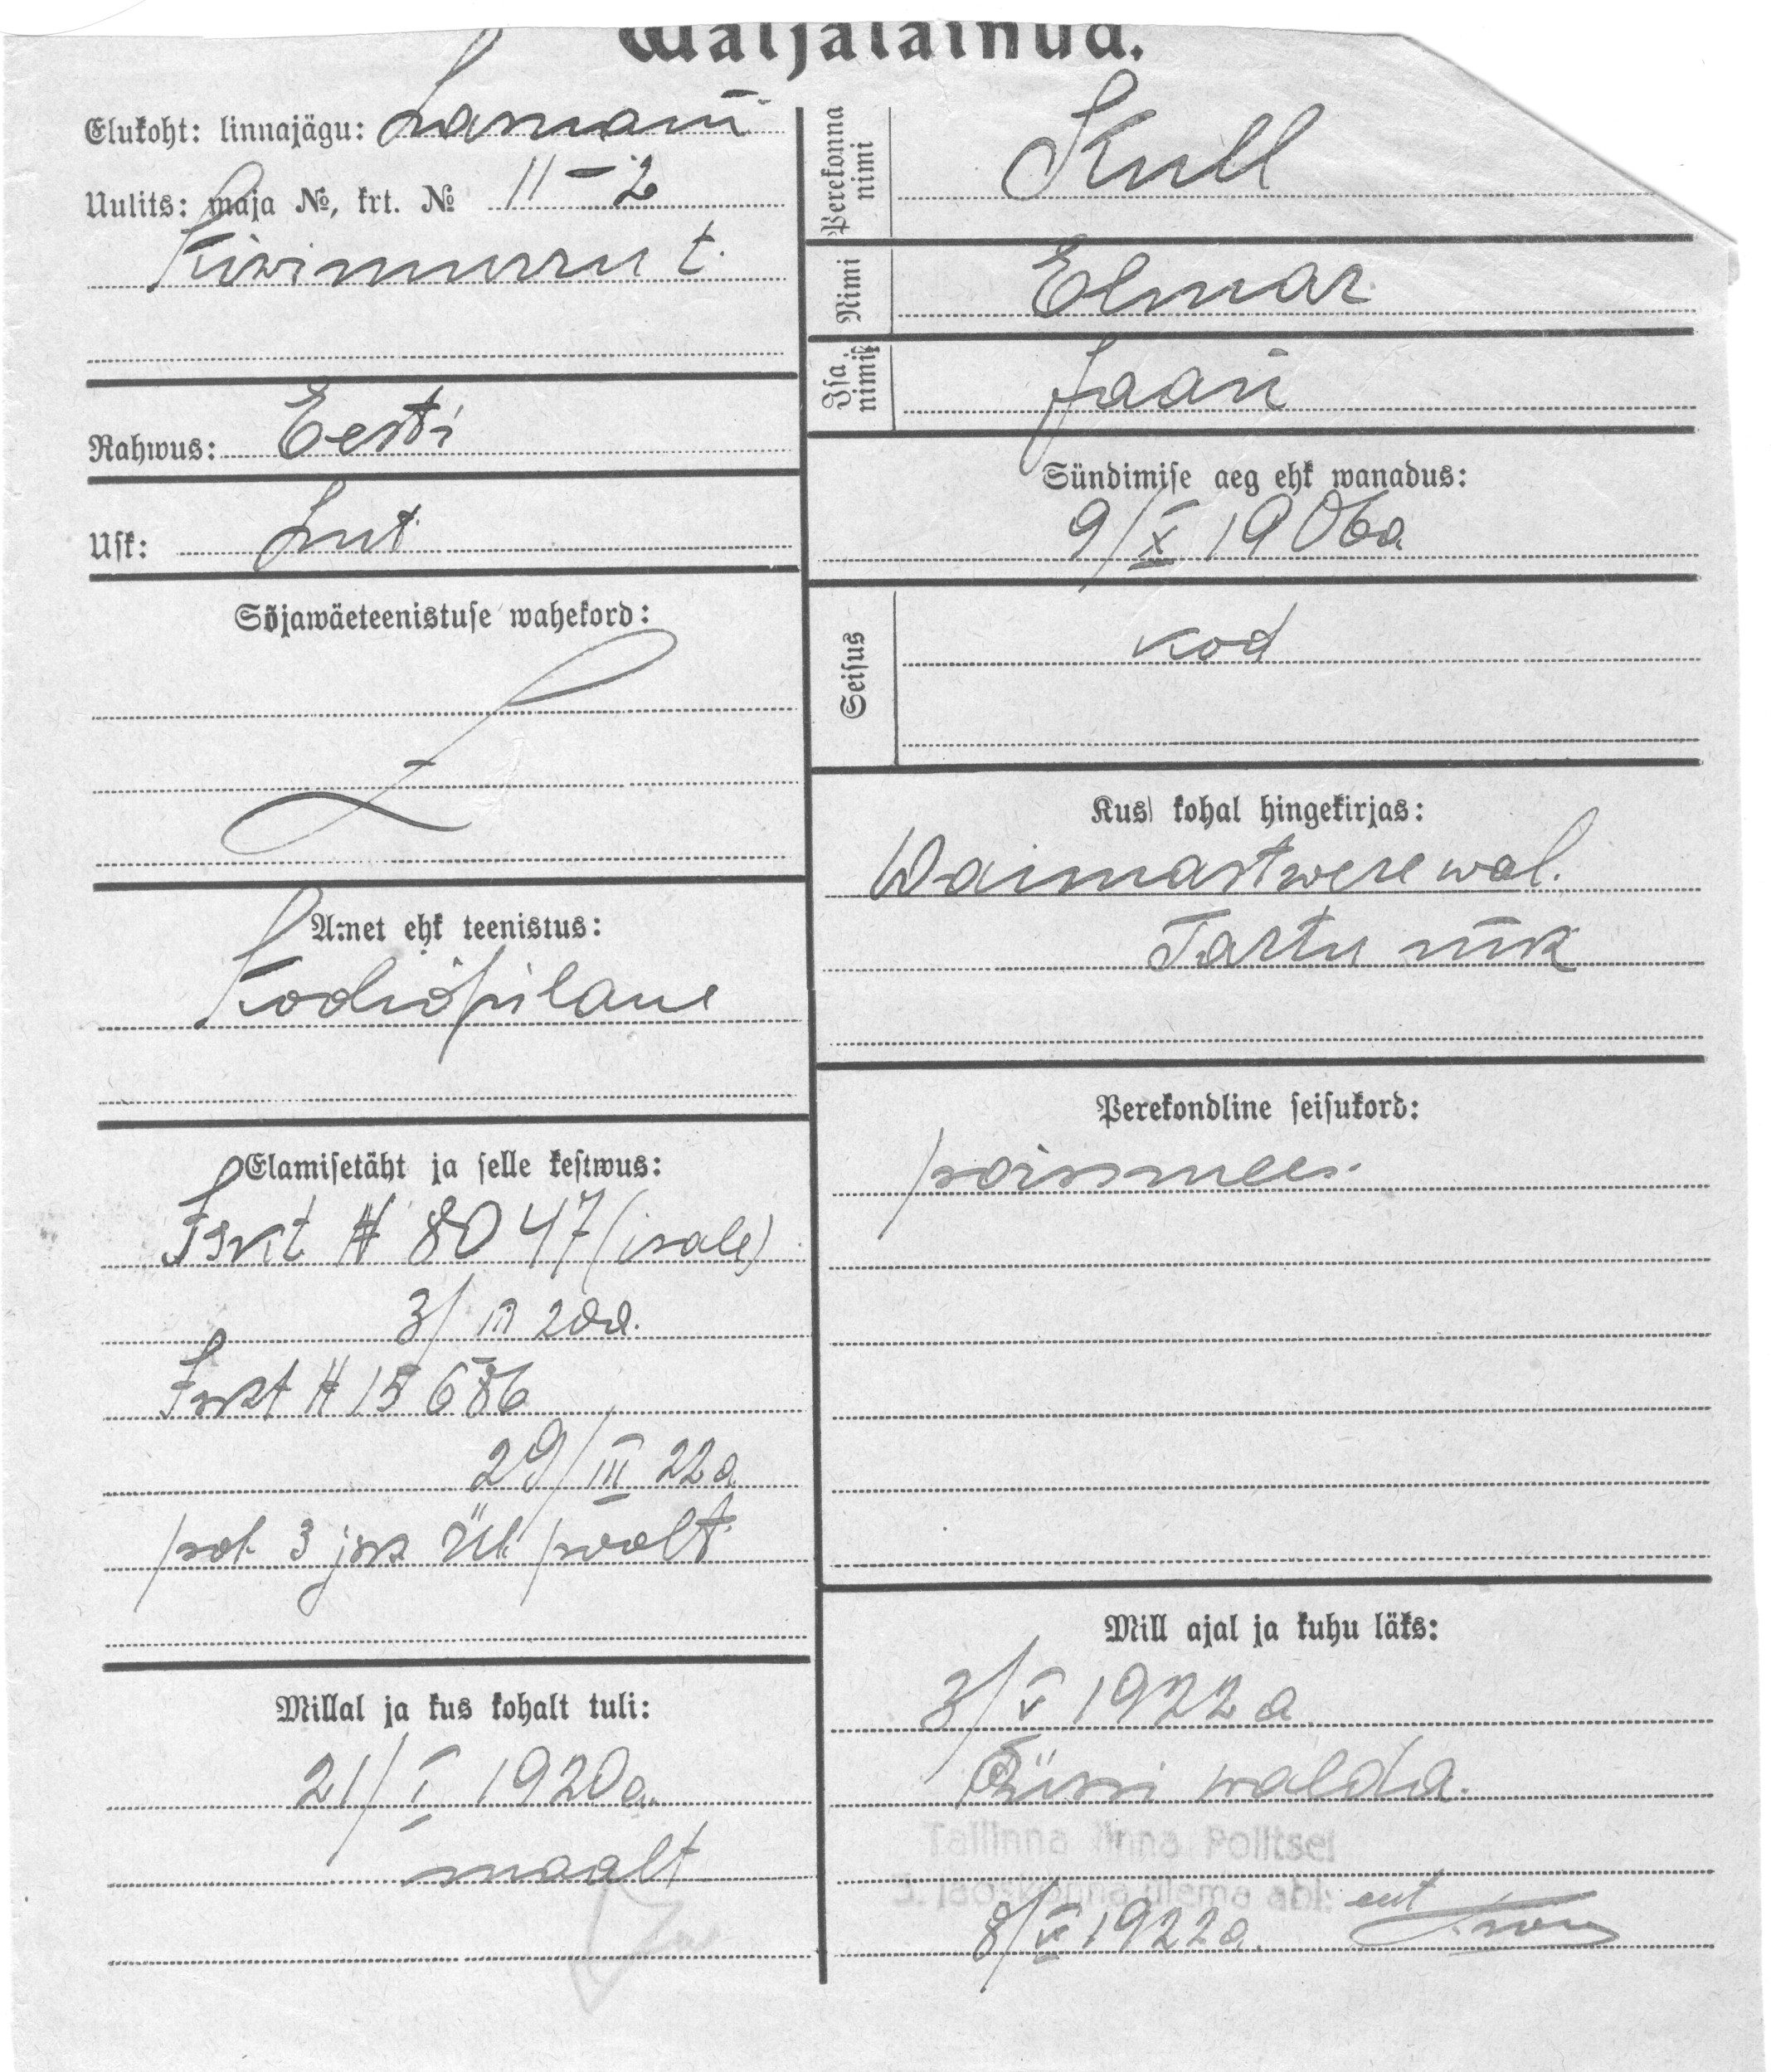 Wäljaläinud.
Elukoht: linnajägu: Lasnam
Uulits: maja №, krt. № 11-2
Kiwimurru t.
Rahwus: Eesti
Usk: Lut
Sõjawäeteenistuse wahekord:
Amet ehk teenistus:
Kooliõpilane
Elamisetäht ja selle kestwus:
Iskt № 8047 (isale)
3/III 20a.
Iskt № 15686
29/III 22a
pol. 3 jsk ül. poolt
Millal ja kus kohalt tuli:
21/I 1920a.
maalt
Perekonna nimi Kull
Nimi Elmar
Isa nimi Jaan
Sündimise aeg ehk wanadus:
9/X 1906a
Seisus kod
Kus kohal hingekirjas:
Waimastwere wal.
Tartu mk
Perekondline seisukord:
poissmees.
Mill ajal ja kuhu läks:
3/V 1922a
Püssi walda.
Tallinna linna Politsei
3. jaoskonna ülema abi:
8/V 1922a.